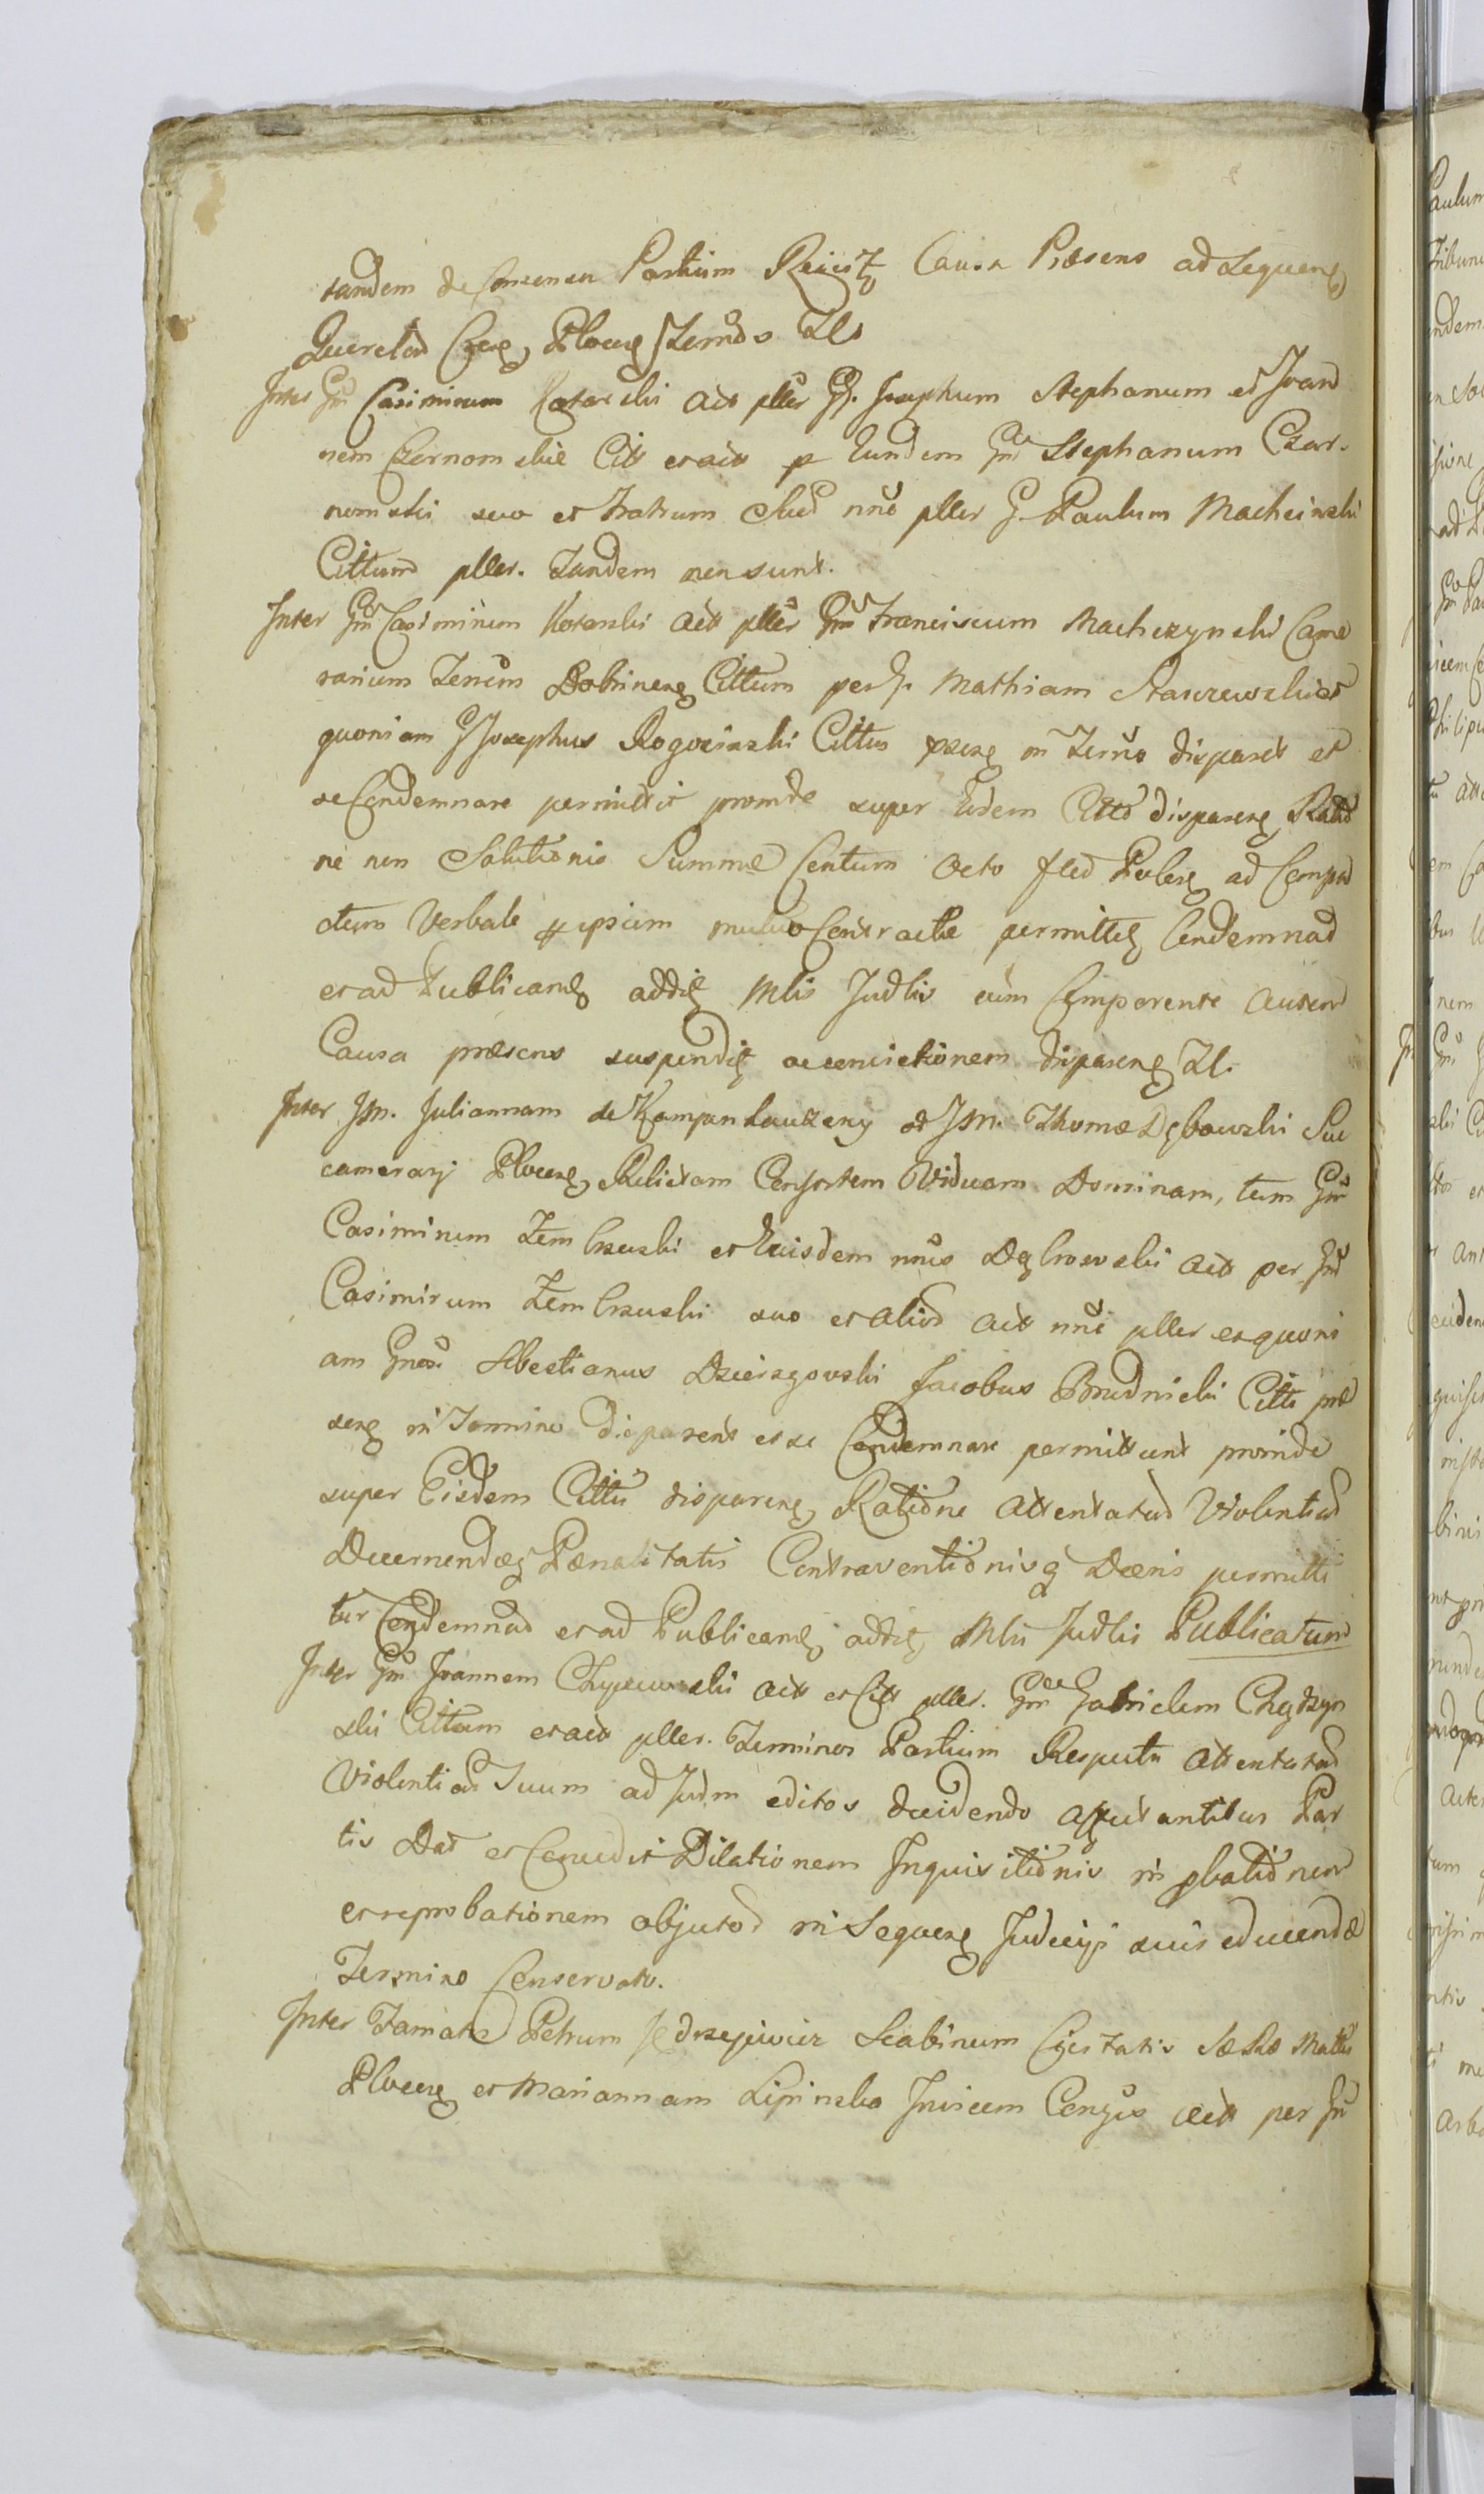 tandem de Consensu Partium Reiicit Causa Præsens ad Sequens
Querelas Plocens
Inter Gm Casimirum Kotarski Act pller GG. Josephum Stephanum et Joan
nem Czernomskie Citt et act p Eundem Gm Stephanum Czar-
nomski suo et Fratrum Sud nnõ pller G. Paulum Machcinski
Cittum pller. Tandem non sunt.
Inter Gm Casimirum Kotarski Act pller Gm Franciscum Machczynski Came
rarium Dobrinens Cittum per G. Mathiam et
quoniam G Josephus Rogocinski Cittus præns in Termo disparet et
se Condemnare permittit proinde super Eodem Citto disparens Ratio
ne non Solutionis Summæ Centum Octo flod Polons ad Compa
ctum Verbale ipsum mutuo Contractæ permittit Condemnad
et ad Publicand addit Mlis Judlis cum Comparente autem
Causa præsens suspendit ac convictionem disparens Zl.
Inter JM. Juliannam de Kampanhauzeny od JM. Thomæ Dębowski Suc
camerarij Plocens, Relictam Consortem Viduam Dominam, tum Gm
Casimirum Zembrzuski et Euisdem nnis Dębowski Act per Gm
Casimirum Zembrzuski suo et aliod Act nnõ pller et quoni
am Gnosi Sebestianus Dzierzgowski Jacobus Brudnicki Citti præ
sens in Termino disparent et se Condemnare permittunt proinde
super Eisdem Cittis disparens, Ratione Attentatad Violentiad
Decernendæq Pænalitatis Contraventionisq Decris permitti
tur Condemnad et ad Publicand addit Mlis Judlis Publicatum
Inter Gm Joannem Act et Citt pller. Gm Gabrielem Chądzyn
ski Cittum et act pller. Terminos Partium Respectu Attentatad
Violentiad Suum ad Judm editos decidendo Par
tis Dat et Concedit Dilationem Inquisitionis in pbationem
et reprobationem objectod in Sequens Judicijs suis educendæ
Termino Conservato.
Inter Famatos Petrum Jędrzejewicz Scabinum Civitatis SæRæ Mattis
Plocens et Mariannam Lipinska Invicem Conges Act per Gm